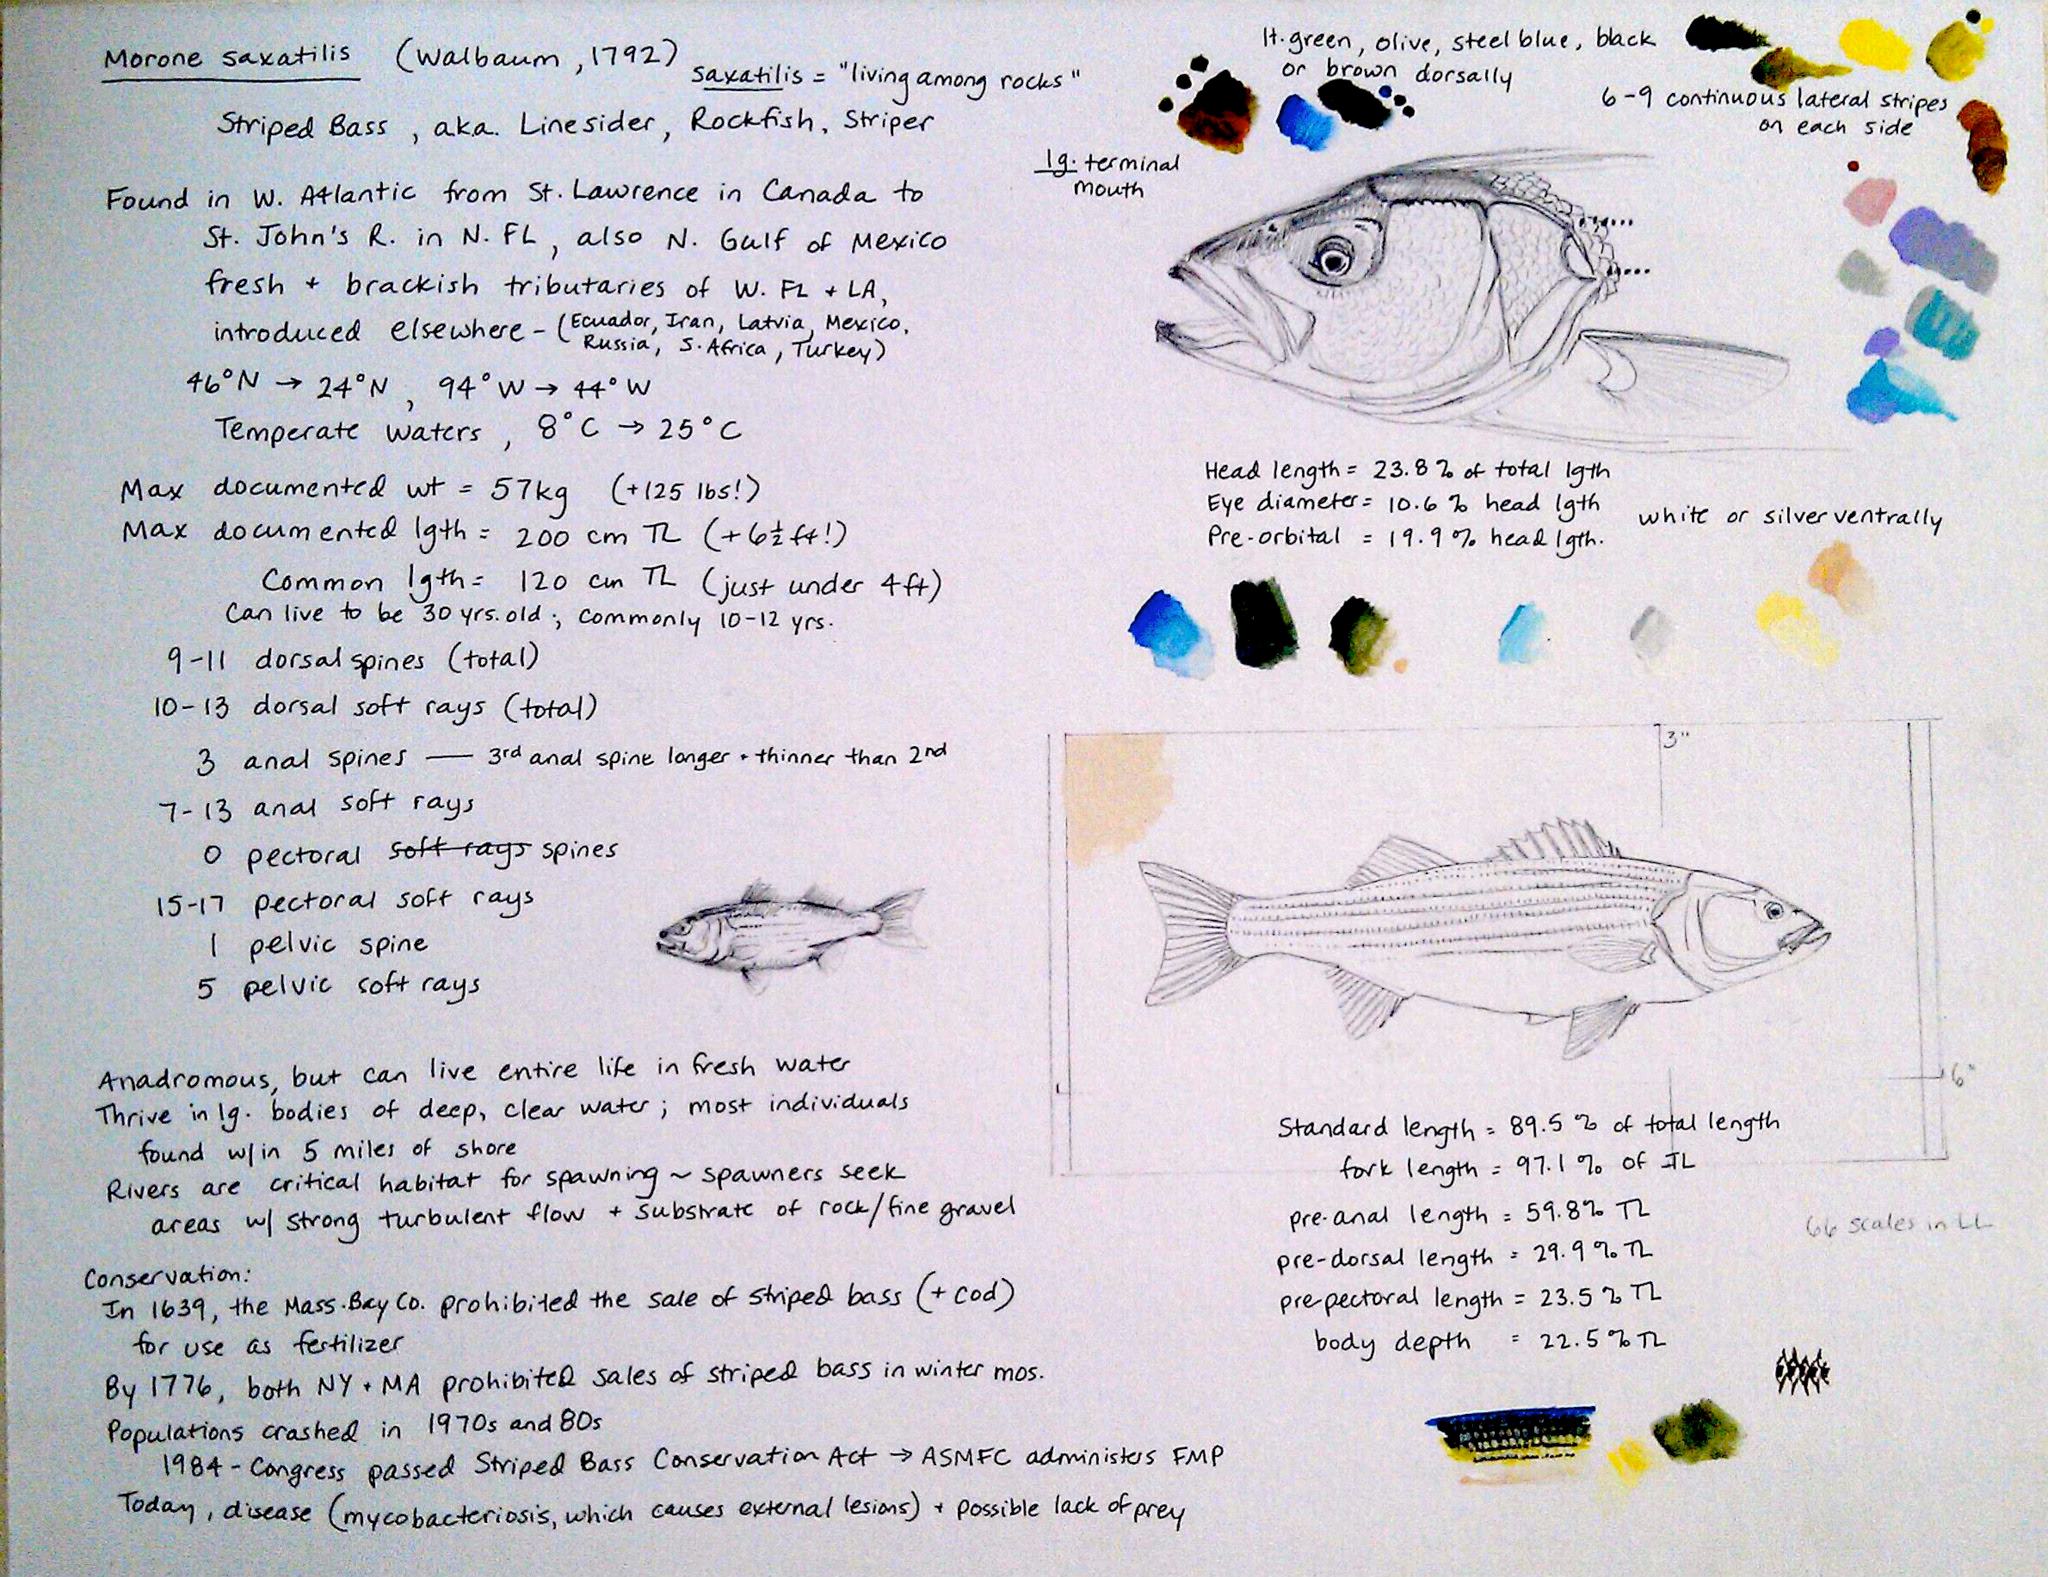 Morone saxatilis (Walbaum, 1792) saxatilis = "living among rocks"
Striped Bass, aka. Linesider, Rockfish, Striper
Found in W. Atlantic from St. Lawrence in Canada to
St. John's R. in N. FL, also N. Gulf of Mexico
fresh + brackish tributaries of W. FL + LA,
introduced elsewhere - (Ecuador, Iran, Latvia, Mexico,
Russia, S. Africa, Turkey)
46°N → 24°N, 94°W → 44°W
Temperate waters, 8°C → 25°C
Max documented wt = 57kg (+125 lbs!)
Max documented lgth = 200 cm TL (+6½ ft!)
Common lgth = 120 cm TL (just under 4ft)
Can live to be 30 yrs. old; commonly 10-12 yrs.
9-11 dorsal spines (total)
10-13 dorsal soft rays (total)
3 anal spines — 3rd anal spine longer + thinner than 2nd
7-13 anal soft rays
0 pectoral soft rays spines
15-17 pectoral soft rays
1 pelvic spine
5 pelvic soft rays
Anadromous, but can live entire life in fresh water
Thrive in lg. bodies of deep, clear water; most individuals
found w/in 5 miles of shore
Rivers are critical habitat for spawning ~ spawners seek
areas w/ strong turbulent flow + substrate of rock/fine gravel
Conservation:
In 1639, the Mass. Bay Co. prohibited the sale of striped bass (+ cod)
for use as fertilizer
By 1776, both NY + MA prohibited sales of striped bass in winter mos.
Populations crashed in 1970s and 80s
1984 - Congress passed Striped Bass Conservation Act → ASMFC administers FMP
Today, disease (mycobacteriosis, which causes external lesions) + possible lack of prey
lt. green, olive, steel blue, black
or brown dorsally
6-9 continuous lateral stripes
on each side
lg. terminal
mouth
Head length = 23.8% of total lgth
Eye diameter = 10.6% head lgth
Pre-orbital = 19.9% head lgth.
white or silver ventrally
3"
6"
Standard length = 89.5% of total length
fork length = 97.1% of TL
pre-anal length = 59.8% TL
pre-dorsal length = 29.9% TL
pre pectoral length = 23.5% TL
body depth = 22.5% TL
66 scales in LL